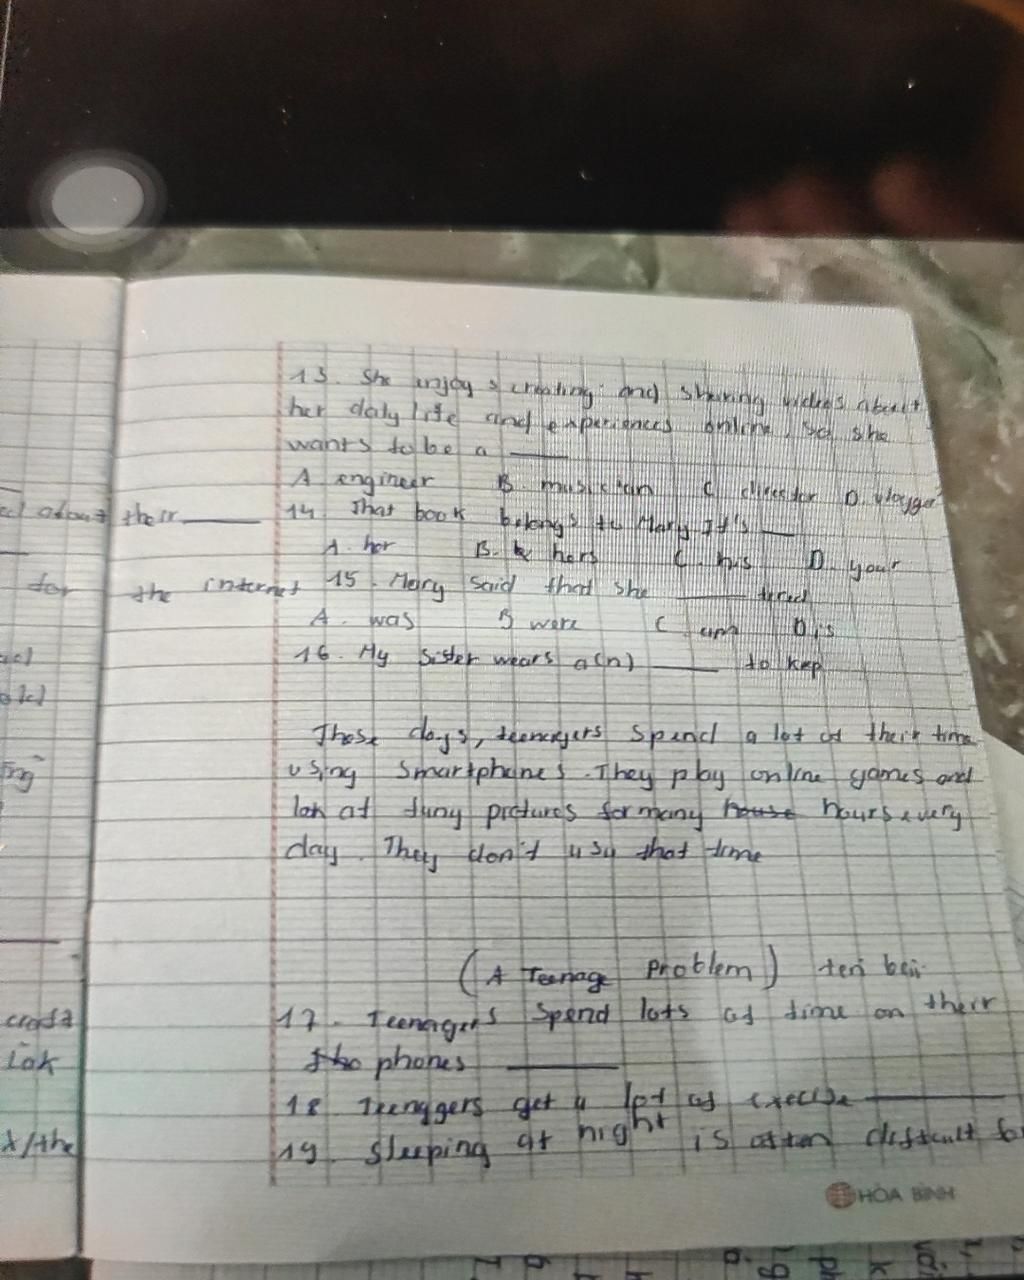 13. She enjoys creating and sharing videos about
her daly life and experiences online, so she
wants to be a ____
A engineer B. musician C director D. vlogger
about their ____ 14. That book belongs to Mary It's ____
A. her B. hers C. his D. your
for the internet 15. Mary said that she ____ tired
A. was B were C am D is
16. My sister wears a(n) ____ to kep
These days, teenagers spend a lot of their time
using smartphones. They play online games and
lok at funy pictures for many house hours every
day. They don't usu that time
(A Teenage Problem) ten bai
17. Teenagers spend lots of time on their
phones ____
lok
18 Teenggers get a lot of ____
x/the 19. Sleeping at night is often difficult fo
HÒA BÌNH